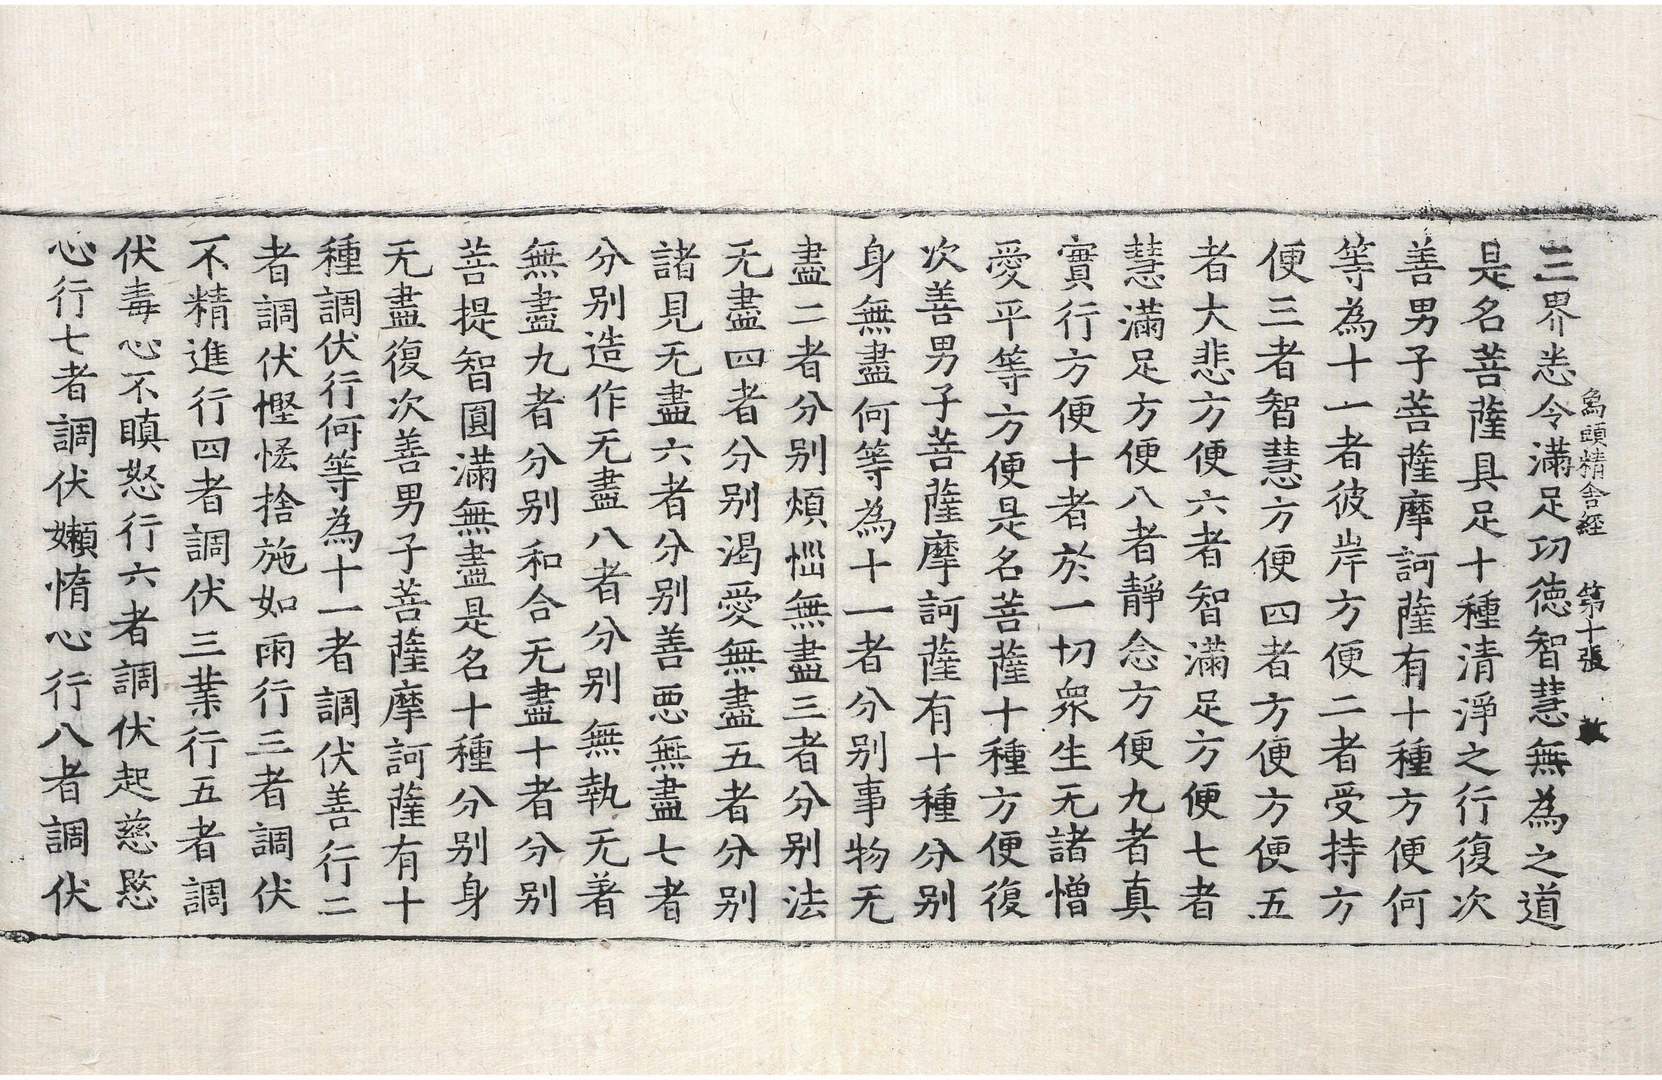 三界悉令滿足功德智慧無為之道
是名菩薩具足十種清淨之行復次
善男子菩薩摩訶薩有十種方便何
等為十一者彼岸方便二者受持方
便三者智慧方便四者方便方便五
者大悲方便六者智滿足方便七者
慧滿足方便八者靜念方便九者真
實行方便十者於一切衆生无諸憎
愛平等方便是名菩薩十種方便復
次善男子菩薩摩訶薩有十種分别
身無盡何等為十一者分别事物无
盡二者分别煩惱無盡三者分别法
无盡四者分别渴愛無盡五者分别
諸見无盡六者分别善惡無盡七者
分别造作无盡八者分别無執无著
無盡九者分别和合无盡十者分别
菩提智圓滿無盡是名十種分别身
无盡復次善男子菩薩摩訶薩有十
種調伏行何等為十一者調伏善行二
者調伏慳悋捨施如雨行三者調伏
不精進行四者調伏三業行五者調
伏毒心不瞋怒行六者調伏起慈愍
心行七者調伏嬾惰心行八者調伏
精舍經 第十張